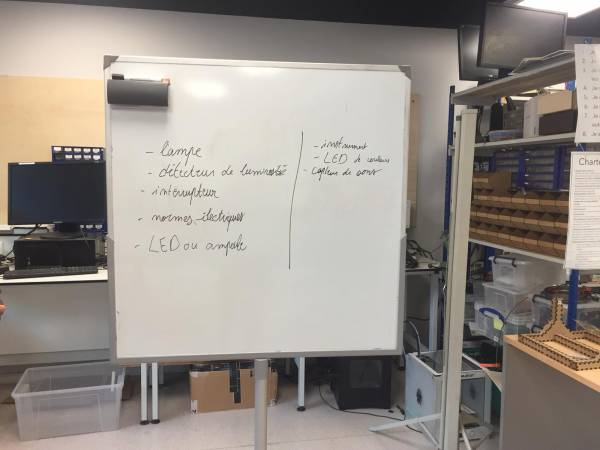 - lampe
- détecteur de luminosité
- interrupteur
- normes électriques
- LED ou ampoule
- instrument
- LED de couleurs
- capteur de sons
Charte